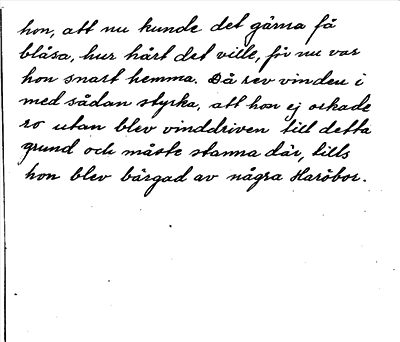 hon, att nu kunde det gärna få
blåsa, hur hårt det ville, för nu var
hon snart hemma. Då rev vinden i
med sådan styrka, att hon ej orkade
ro utan blev vinddriven till detta
grund och måste stanna där, tills
hon blev bärgad av några Haröbor.